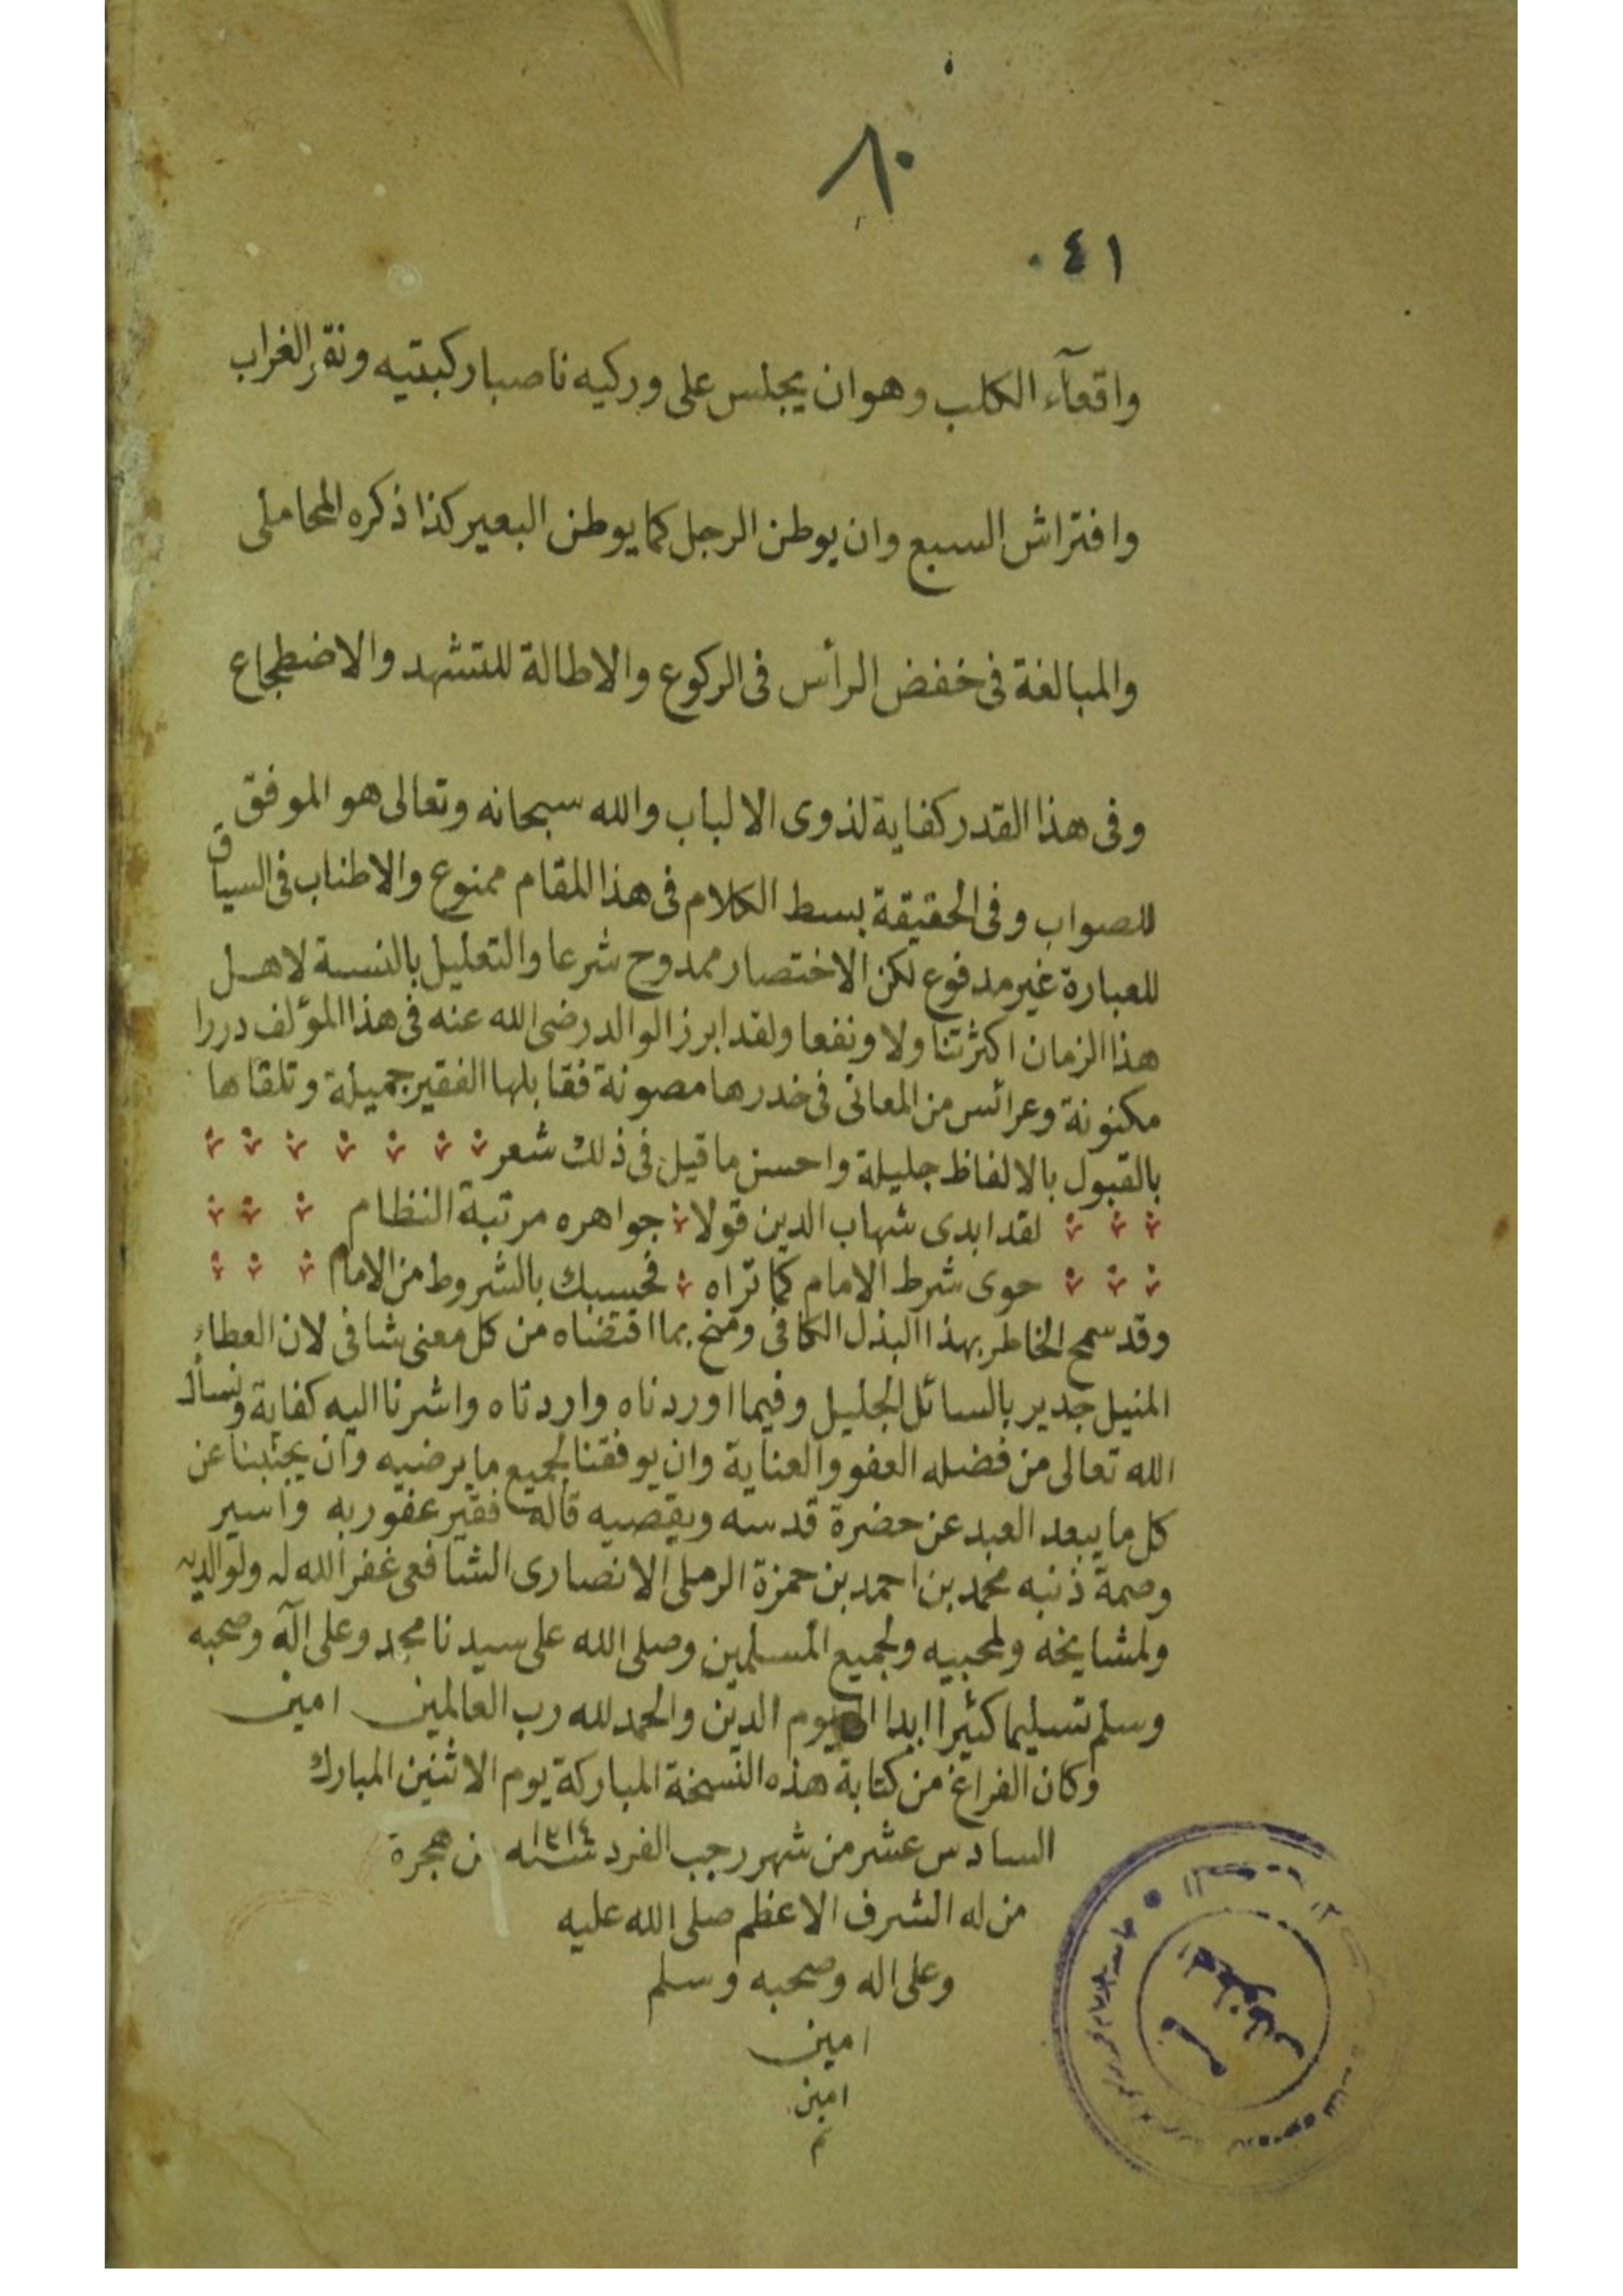 ٨٠
٤١
واقعآء الكلب وهوان يجلس على وركيه ناصبا ركبتيه ونقر الغراب
وافتراش السبع وان يوطن الرجل كما يوطن البعير كذا ذكره المحاملى
والمبالغة فى خفض الرأس فى الركوع والاطالة للتشهد والاضطجاع
وفى هذا القدر كفاية لذوى الالباب والله سبحانه وتعالى هو الموفق
للصواب وفى الحقيقة بسط الكلام فى هذا المقام ممنوع والاطناب فى السياق
للعبارة غير مدفوع لكن الاختصار ممدوح شرعا والتعليل بالنسبة لاهل
هذا الزمان اكثر تناولا ونفعا ولقد ابرز الوالد رضى الله عنه فى هذا المؤلف دررا
مكنونة وعرائس من المعانى فى خدرها مصونة فقابلها الفقير جميلة وتلقاها
بالقبول بالالفاظ جليلة واحسن ما قيل فى ذلك شعر
لقد ابدى شهاب الدين قولا جواهره مرتبة النظام
حوى شرط الامام كما تراه فحسبك بالشروط من الامام
وقد سمح الخاطر بهذا البذل الكافى ومنح بما اقتضاه من كل معنى شافى لان العطاء
المنيل جدير بالسائل الجليل وفيما اوردناه واردناه واشرنا اليه كفاية ونسأل
الله تعالى من فضله العفو والعناية وان يوفقنا لجميع ما يرضيه وان يجنبنا عن
كل ما يبعد العبد عن حضرة قدسه ويقصيه قاله فقير عفو ربه واسير
وصمة ذنبه محمد بن احمد بن حمزة الرملى الانصارى الشافعى غفر الله له ولوالديه
ولمشايخه ولمحبيه ولجميع المسلمين وصلى الله على سيدنا محمد وعلى آله وصحبه
وسلم تسليما كثيرا ابدا الى يوم الدين والحمد لله رب العالمين امين
وكان الفراغ من كتابة هذه النسخة المباركة يوم الاثنين المبارك
السادس عشر من شهر رجب الفرد سنة ١٣١٤ من هجرة
من له الشرف الاعظم صلى الله عليه
وعلى اله وصحبه وسلم
امين
امين
م
قسم المخطوطات